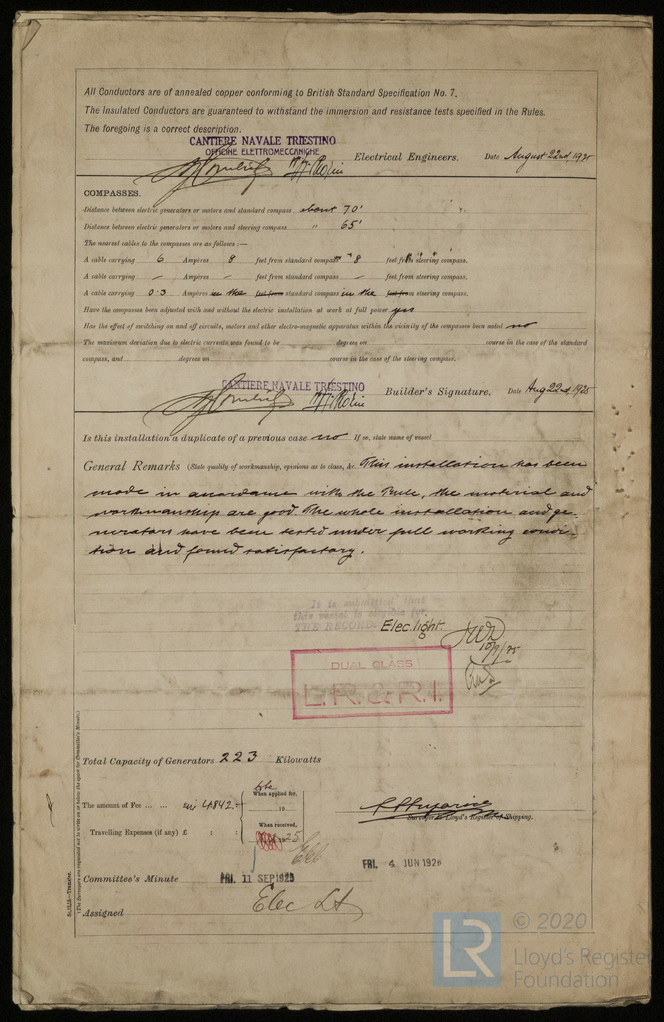 All Conductors are of annealed copper conforming to British Standard Specification No. 7.
The Insulated Conductors are guaranteed to withstand the immersion and resistance tests specified in the Rules.
The foregoing is a correct description.
CANTIERE NAVALE TRIESTINO
OFFICINE ELETTROMECCANICHE
Electrical Engineers. Date August 22nd, 1925
COMPASSES.
Distance between electric generators or motors and standard compass about 70'
Distance between electric generators or motors and steering compass " 65'
The nearest cables to the compasses are as follows :—
A cable carrying 6 Ampères 8 feet from standard compass 8 feet from steering compass.
A cable carrying – Ampères – feet from standard compass – feet from steering compass.
A cable carrying 0.3 Ampères in the feet from standard compass in the feet from steering compass.
Have the compasses been adjusted with and without the electric installation at work at full power yes
Has the effect of switching on and off circuits, motors and other electro-magnetic apparatus within the vicinity of the compasses been noted no
The maximum deviation due to electric currents was found to be degrees on course in the case of the standard
compass, and degrees on course in the case of the steering compass.
CANTIERE NAVALE TRIESTINO
Builder's Signature. Date Aug 22nd 1925
Is this installation a duplicate of a previous case no If so, state name of vessel
General Remarks (State quality of workmanship, opinions as to class, &c. This installation has been
made in accordance with the Rule, the material and
workmanship are good. The whole installation and ge-
nerators have been tested under full working condi-
tion and found satisfactory.
It is submitted that
this vessel is eligible for
THE RECORD. Elec. light.
10/9/25
DUAL CLASS
L.R. & R.I.
Total Capacity of Generators 223 Kilowatts
The amount of Fee ... ... 4842.– When applied for,
19
When received,
Travelling Expenses (if any) £ : : 1925
Surveyor to Lloyd's Register of Shipping.
FRI. 4 JUN 1926
Committee's Minute FRI. 11 SEP 1925
Assigned Elec Lt
(The Surveyors are requested not to write on or below the space for Committee's Minute.)
© 2020
LR
Lloyd's Register
Foundation